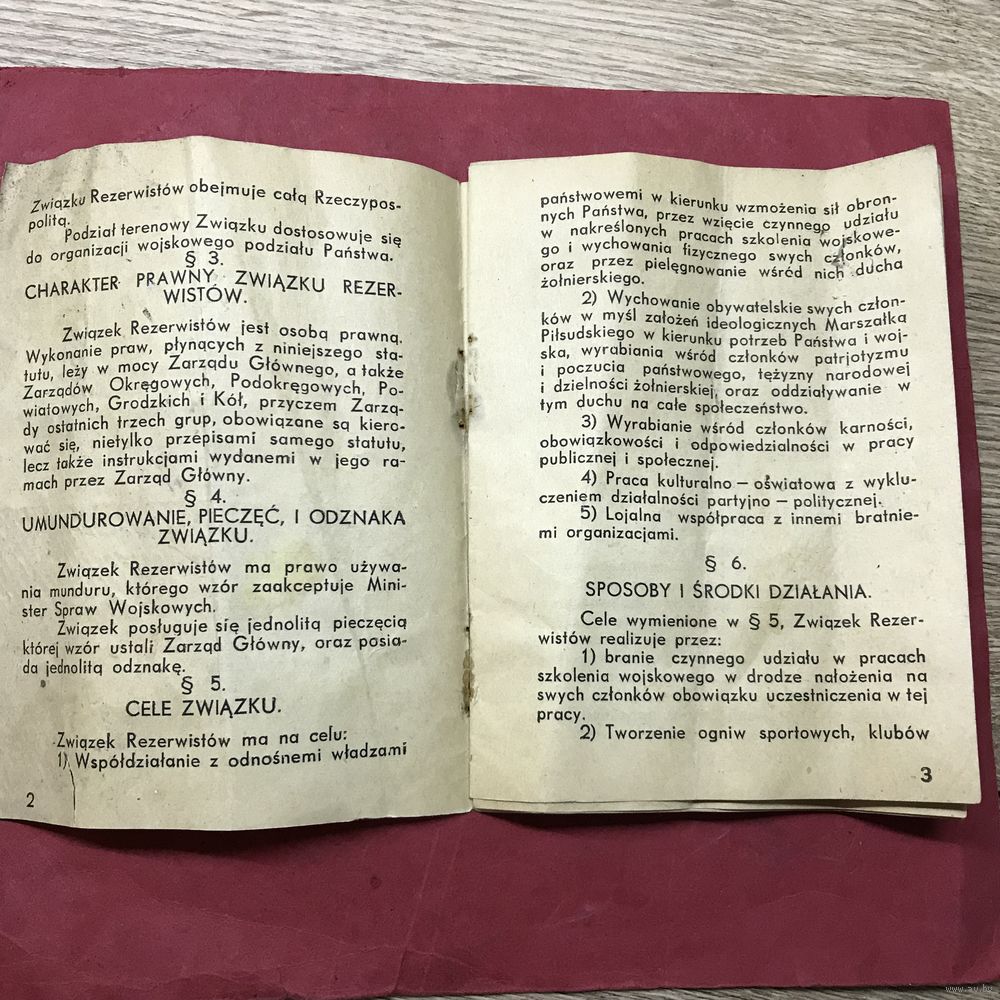 Związku Rezerwistów obejmuje całą Rzeczypos-
politą.
Podział terenowy Związku dostosowuje się
do organizacji wojskowego podziału Państwa.
§ 3.
CHARAKTER PRAWNY ZWIĄZKU REZER-
WISTÓW.
Związek Rezerwistów jest osobą prawną.
Wykonanie praw, płynących z niniejszego sta-
tutu, leży w mocy Zarządu Głównego, a także
Zarządów Okręgowych, Podokręgowych, Po-
wiatowych, Grodzkich i Kół, przyczem Zarzą-
dy ostatnich trzech grup, obowiązane są kiero-
wać się, nietylko przepisami samego statutu,
lecz także instrukcjami wydanemi w jego ra-
mach przez Zarząd Główny.
§ 4.
UMUNDUROWANIE, PIECZĘĆ, I ODZNAKA
ZWIĄZKU.
Związek Rezerwistów ma prawo używa-
nia munduru, którego wzór zaakceptuje Mini-
ster Spraw Wojskowych.
Związek posługuje się jednolitą pieczęcią
której wzór ustali Zarząd Główny, oraz posia-
da jednolitą odznakę.
§ 5.
CELE ZWIĄZKU.
Związek Rezerwistów ma na celu:
1) Współdziałanie z odnośnemi władzami
2
państwowemi w kierunku wzmożenia sił obron-
nych Państwa, przez wzięcie czynnego udziału
w nakreślonych pracach szkolenia wojskowe-
go i wychowania fizycznego swych członków,
oraz przez pielęgnowanie wśród nich ducha
żołnierskiego.
2) Wychowanie obywatelskie swych człon-
ków w myśl założeń ideologicznych Marszałka
Piłsudskiego w kierunku potrzeb Państwa i woj-
ska, wyrabiania wśród członków patrjotyzmu
i poczucia państwowego, tężyzny narodowej
i dzielności żołnierskiej, oraz oddziaływanie w
tym duchu na całe społeczeństwo.
3) Wyrabianie wśród członków karności,
obowiązkowości i odpowiedzialności w pracy
publicznej i społecznej.
4) Praca kulturalno – oświatowa z wyklu-
czeniem działalności partyjno – politycznej.
5) Lojalna współpraca z innemi bratnie-
mi organizacjami.
§ 6.
SPOSOBY I ŚRODKI DZIAŁANIA.
Cele wymienione w § 5, Związek Rezer-
wistów realizuje przez:
1) branie czynnego udziału w pracach
szkolenia wojskowego w drodze nałożenia na
swych członków obowiązku uczestniczenia w tej
pracy.
2) Tworzenie ogniw sportowych, klubów
3
www.av.by